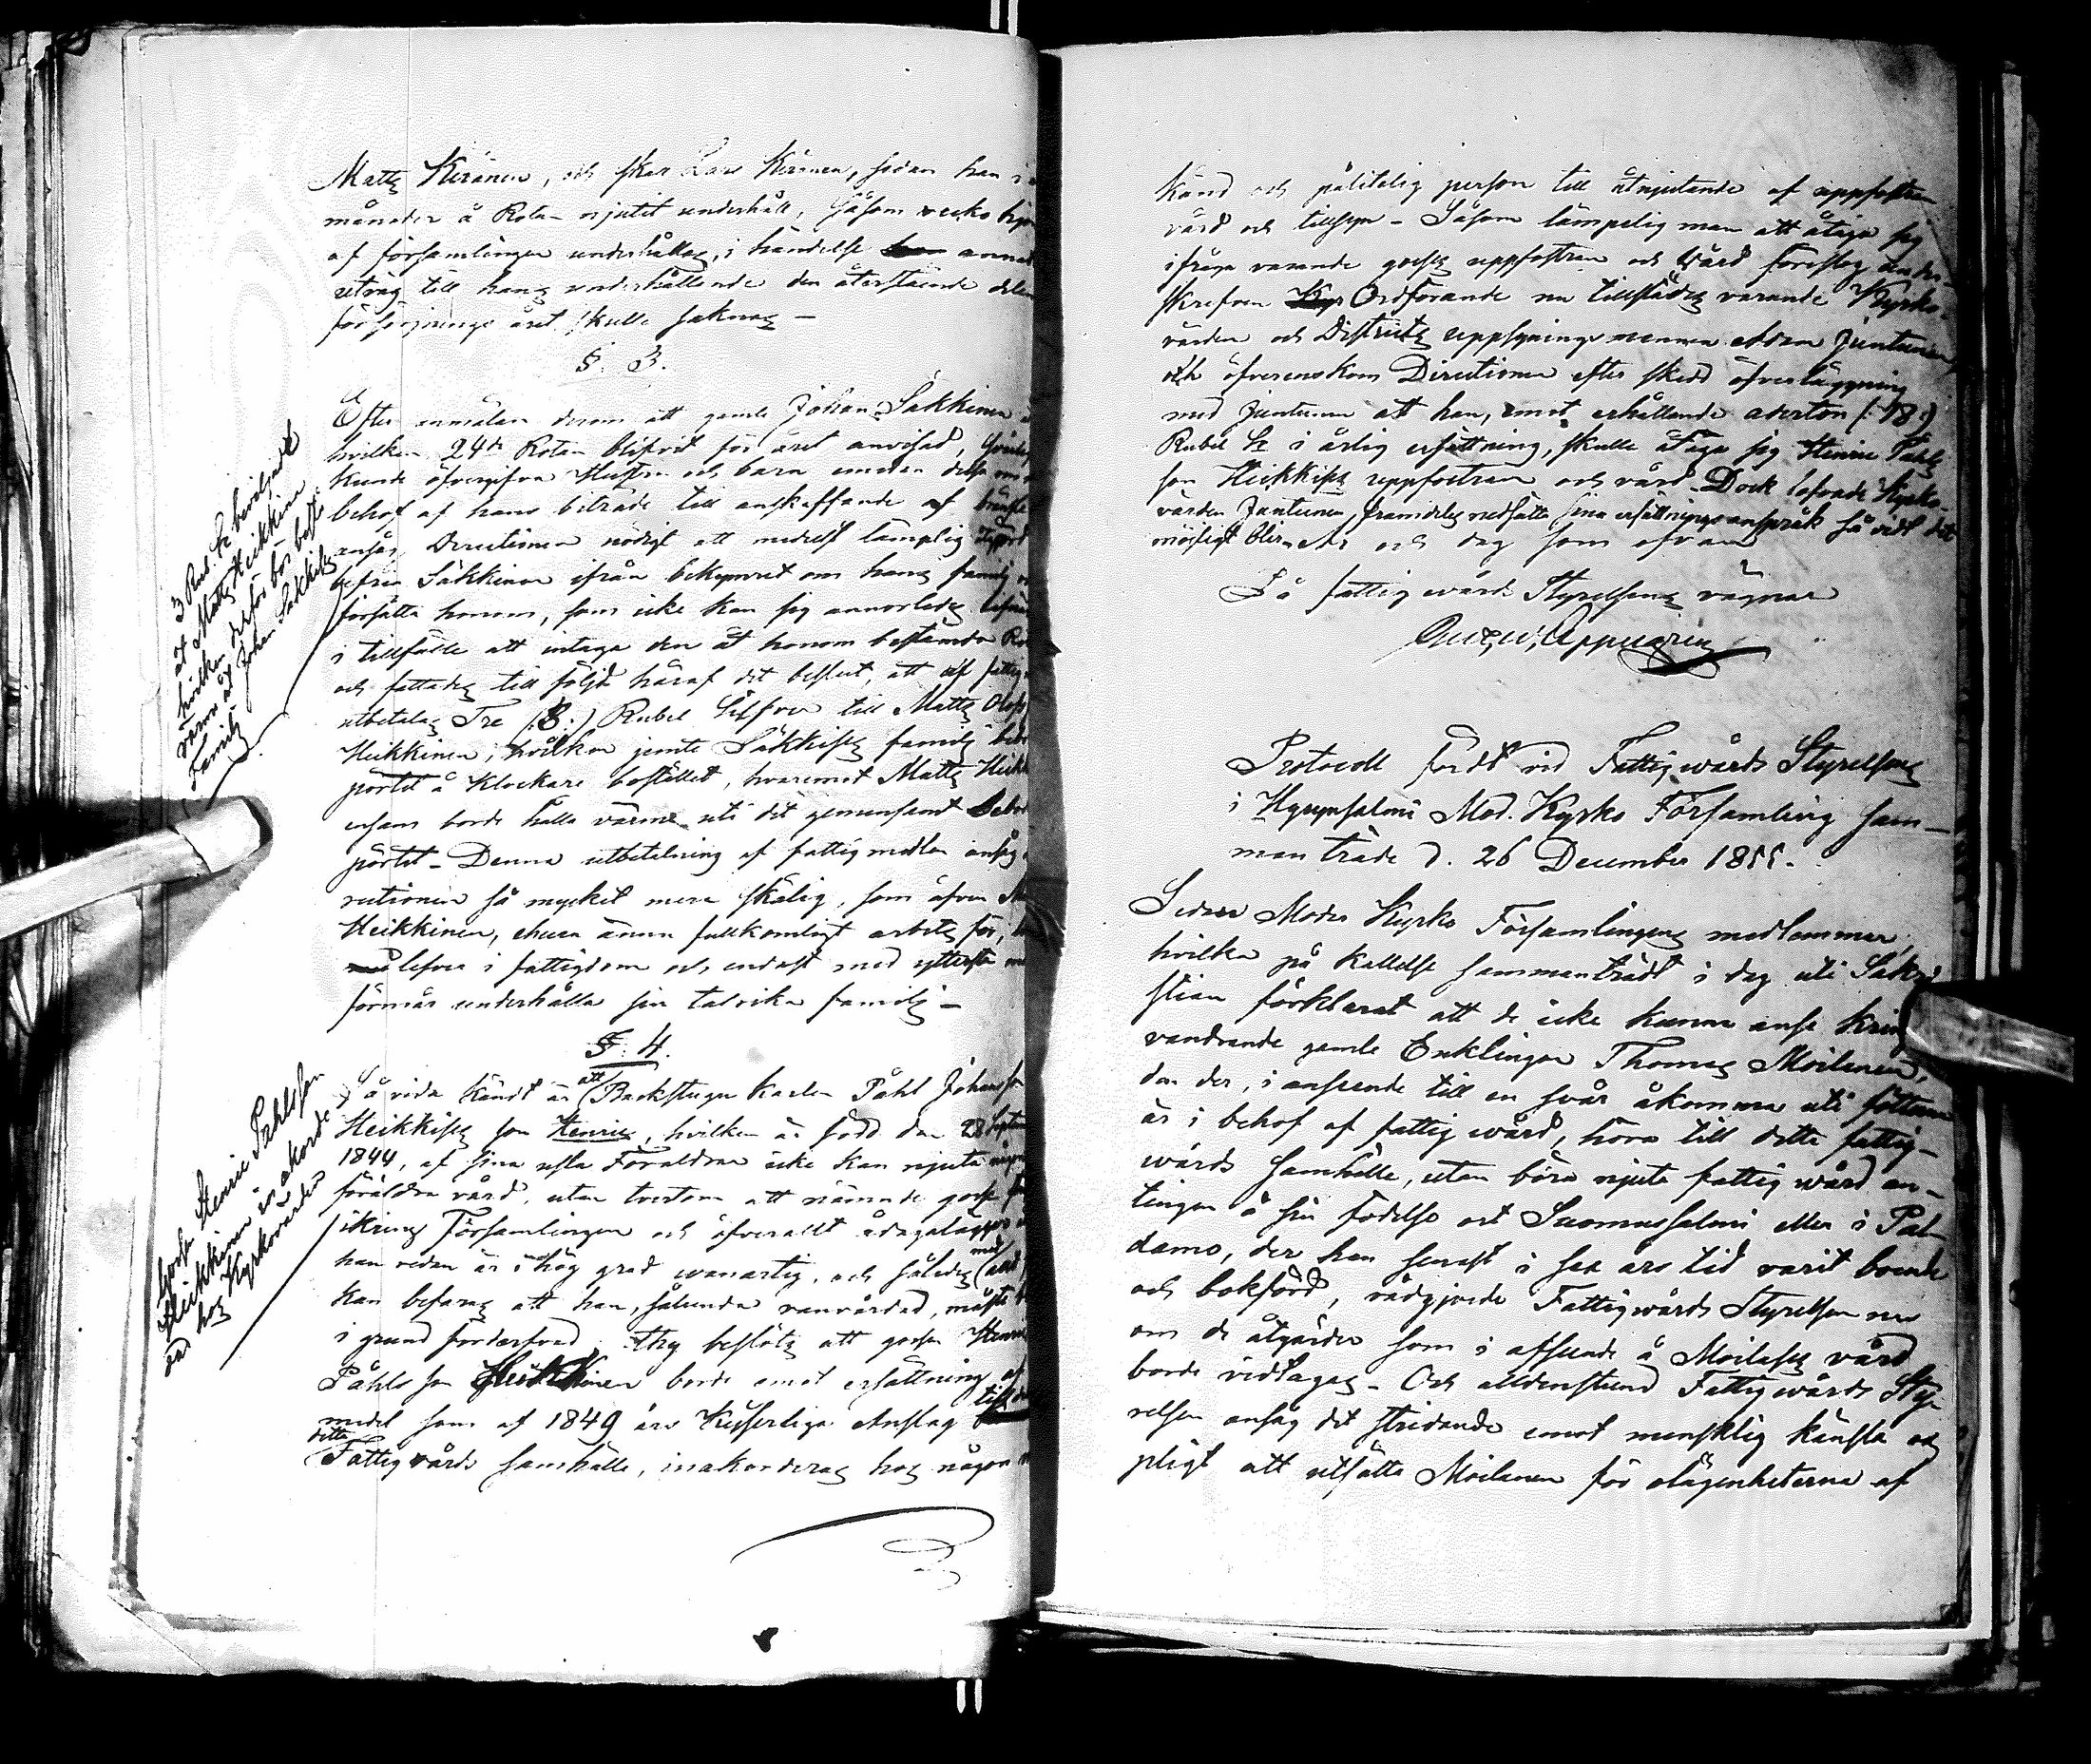 Matts Keränen, och skas Lars Kärnen, sedan han i
månader å Rota njutit underhåll, såsom
af församlingen underhållas, i händelse annat
utväg till hans underhållande den återstående delen
försörjnings året skulle saknas –
§. 3.
Efter anmälan derom att gamle Johan Säkkinen
hvilken 24de Rotan blifvit för året anvisad,
kunde öfvergifva Hustru och barn emedan
behof af hans biträde till anskaffande af bränsle
ansåg Directionen nödigt att medelst lämplig åtgärd
befria Säkkinen ifrån bekymret om hans familj
försätta honom, som icke kan sig annorledes
i tillfälle att intaga den åt honom bestämda
och fattades till följd häraf det beslut, att af
utbetalas Tre (3.) Rubel Silfver till Matts Olofs
Heikkinen, hvilken jemte Säkkises familj
pörtet å Klockare bostället, hvaremot Matts
ensam borde hålla värme uti det gemensamt
pörtet – Denna utbetalning af fattigmedlen ansåg
rectionen så mycket mera skälig, som äfven
Heikkinen, ehuru ännu fullkomligt arbets för,
lefver i fattigdom och endast med yttersta
förmår underhålla sin talrika familj –
§. 4.
Så vida kändt är att Backstugu Karlen Påhl Johansson
Heikkises son Henric, hvilken är född den 28 Septem
1844, af sina usla Föräldrar icke kan njuta någon
föräldra vård, utan tvertom att nämnde gosse
ikring Församlingen och öfverallt ådagalagger
han redan är i hög grad vanartig, och således med allt
kan befaras att han, sålunda vanvårdad, måste
i grund förderfvad thy beslöts att gossen Henric
Påhls son Heikkinen borde emot ersättning af
medel som af 1849 års Kejserliga Anslag till
detta
Fattigvårds samhälle, inakorderas hos någon
3 Rub. Sr beviljade
åt Matts Heikkinen
hvilken derför bör bestå
värme åt Johan Säkkises
Familj
Gossen Henric Påhlsson
Heikkinen in akorde-
rad hos Kyrkovärden
känd och pålitelig person till åtnjutande af uppfostran
vård och tillsyn – Såsom lämpelig man att åtaga sig
ifråga varande gosses uppfostran och vård föreslog under-
skrefven Ordförande nu tillstädes varande Kyrko-
värden och Districts uppsyningsmannen Adam Juntunen
och öfverenskom Directionen efter skedd öfverläggning
med Juntunen att han, emot erhållande aderton (: 18 :)
Rubel Sr i årlig ersättning, skulle åtaga sig Henric Påhls
son Heikkises uppfostran och vård – Dock lofvade Kyrko-
värden Juntunen framdeles nedsätta sina ersättnings anspråk så vidt det
möjligt blir – År och dag som ofvan
På fattigvårds Styrelsens vägnar

Protocoll fördt vid Fattigvårds Styrelsens
i Hyrynsalmi Mod. Kyrko Församling sam-
manträde d. 26 December 1855.
Sedan Moder Kyrko Församlingens medlemmar
hvilka på kallelse sammanträdt i dag uti Sakri-
stian förklarat att de icke kunna anse kring
vandrande gamle Enklingen Thomas Moilanen,
den der, i anseende till en svår åkomma uti fötterna
är i behof af fattigvård, höra till detta fattig-
vårds samhälle, utan böra njuta fattigvård an-
tingen å sin födelse ort Suomussalmi eller i Pal-
damo, der han senast i sex års tid varit boende
och bokförd, rådgjorde Fattigvårds Styrelsen nu
om de åtgärder som i afseende å Moilases vård
borde vidtagas – Och alldenstund Fattigvårds Sty-
relsen ansåg det stridande emot mensklig känsla och
pligt att utsätta Moilanen för olägenheterna af